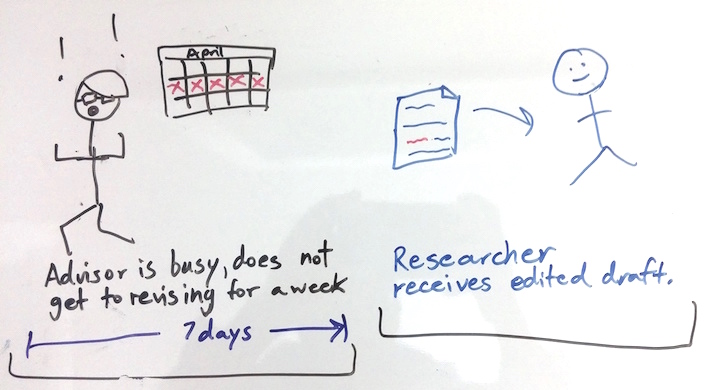 ! !
April
x x x x x
Advisor is busy, does not
get to revising for a week
7 days
Researcher
receives edited draft.